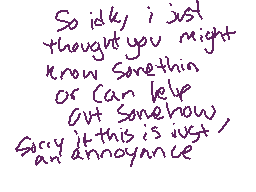 So idk, i just
thought you might
know somethin
or can help
out somehow
Sorry if this is just,
an annoyance